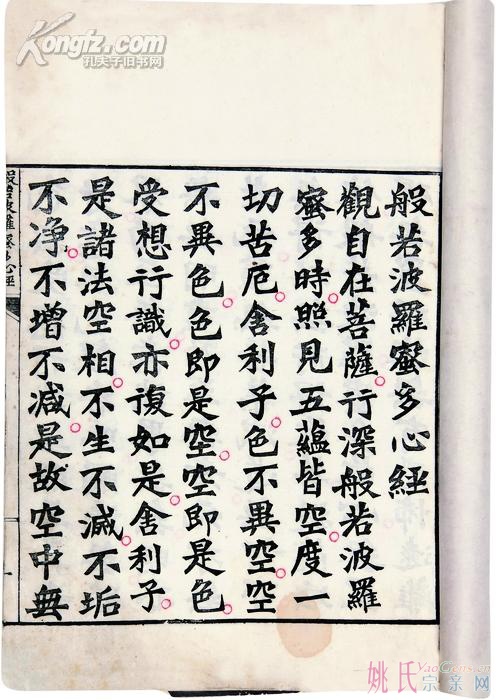 Kongfz.com
孔夫子旧书网
般若波羅蜜多心經
觀自在菩薩行深般若波羅
蜜多時照見五蘊皆空度一
切苦厄舍利子色不異空空
不異色色即是空空即是色
受想行識亦復如是舍利子
是諸法空相不生不滅不垢
不净不增不减是故空中無
般若波羅蜜多心經
一
姚氏宗亲网
YaoGens.cn